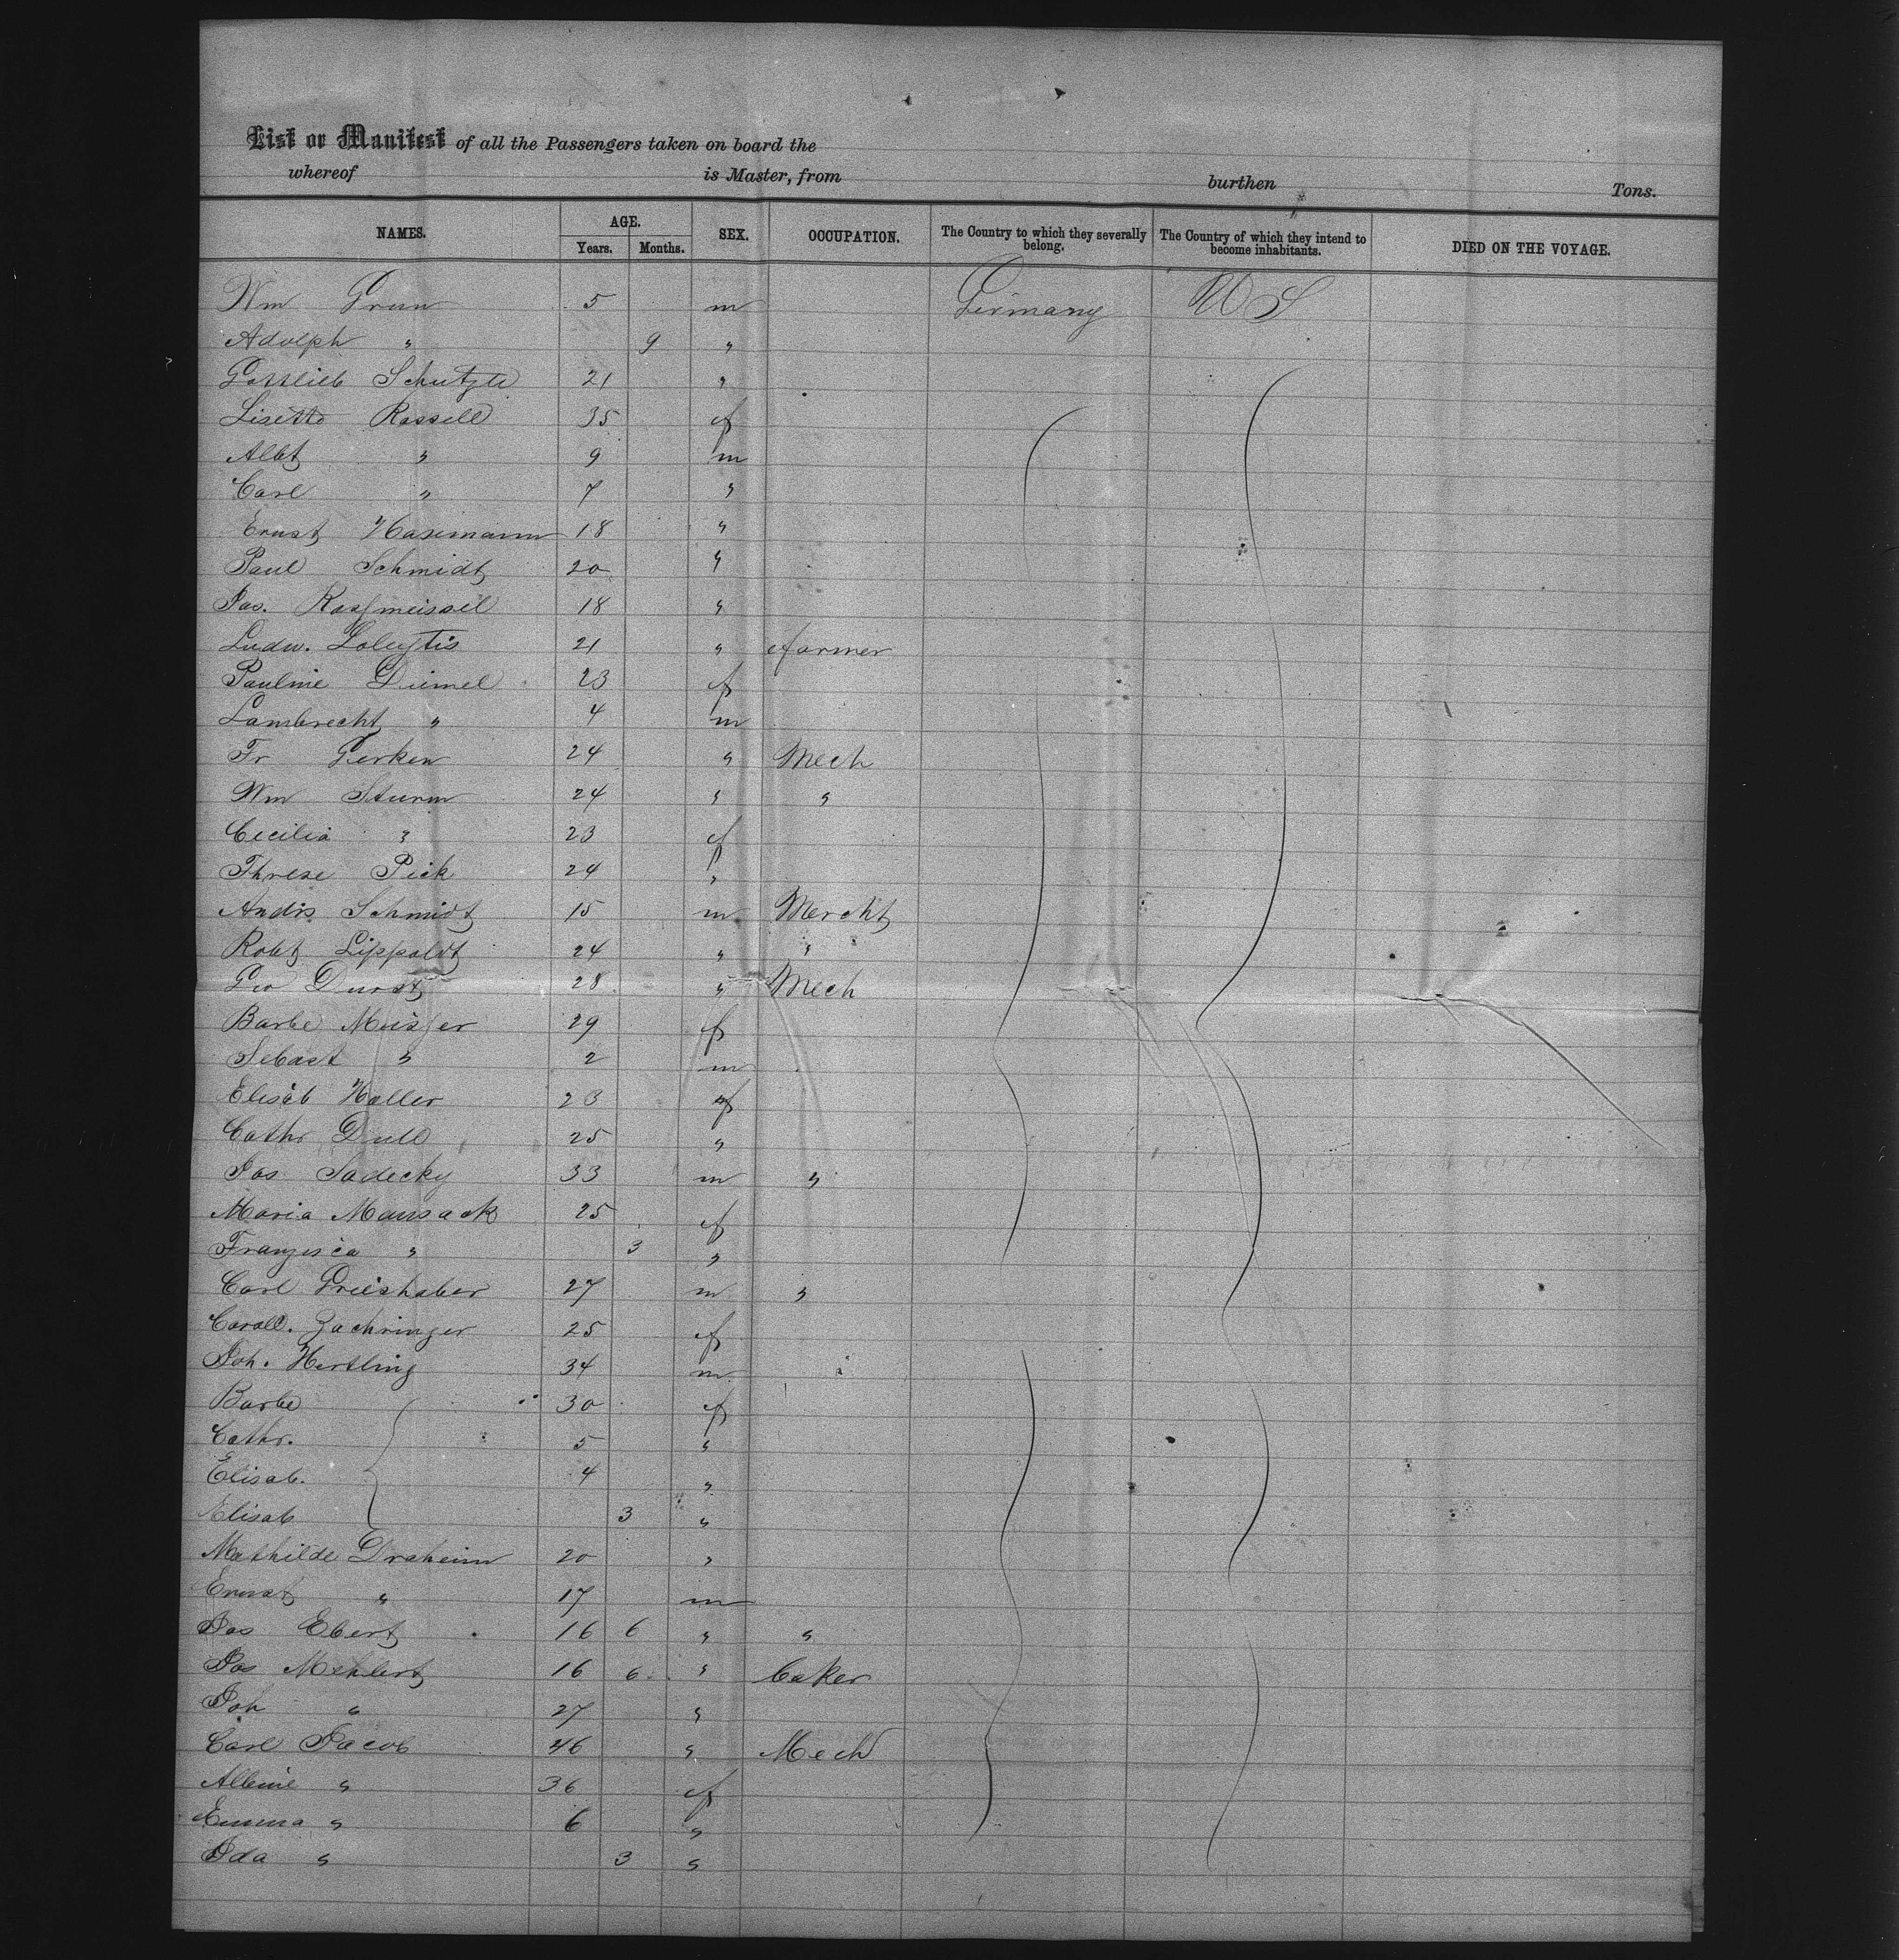 List or Manifest of all the Passengers taken on board the
whereof is Master, from burthen Tons.
NAMES. AGE. Years. Months. SEX. OCCUPATION. The Country to which they severally belong. The Country of which they intend to become inhabitants. DIED ON THE VOYAGE.
Wm Grun 5 m Germany U S
Adolph " 9 "
Gottlieb Schutzle 21 "
Lisette Rossell 35 f
Albt " 9 m
Carl " 7 "
Ernst Hasemann 18 "
Paul Schmidt 20 "
Jos. 18 "
Ludw. 21 " farmer
Pauline Diemel 23 f
Lambrecht " 4 m
Fr Gerken 24 " Mech
Wm Sturm 24 " "
Cecilia " 23 f
Threse Pick 24 "
Andr. Schmidt 15 m Mercht
Robt Lippoldt 24 " "
Geo Durst 28 " Mech
Barbe 29 f
Sebast " 2 m
Elisab Haller 23 f
Cathr Dull 25 "
Jos Sadecky 33 m "
Maria Mansack 25 f
Franzisca " 3 "
Carl Grieshaber 27 m "
Zachringer 25 f
Joh. Hertling 34 m
Barbe 30 f
Cathr. 5 "
Elisab. 4 "
Elisab 3 "
Mathilde Draheim 20 "
Ernst " 17 m
Jos Ebert 16 6 " "
Jos Mehlert 16 6 " baker
Joh " 27 "
Carl Jacob 46 " Mech
Albine " 36 f
Emma " 6 "
Ida " 3 "